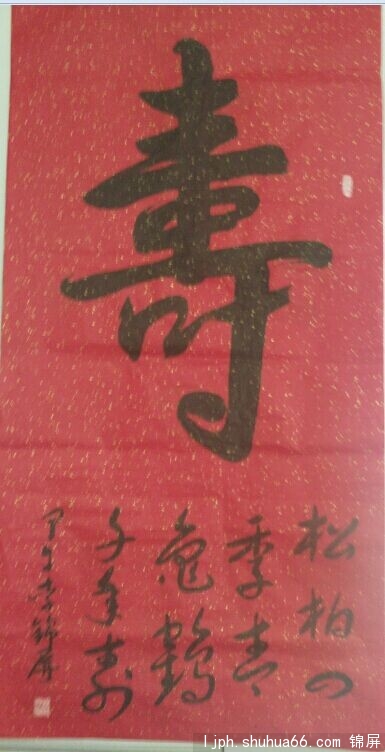 壽
松柏四
季青
龟鶴
千年寿
甲午 锦屏
ljph.shuhua66.com 锦屏